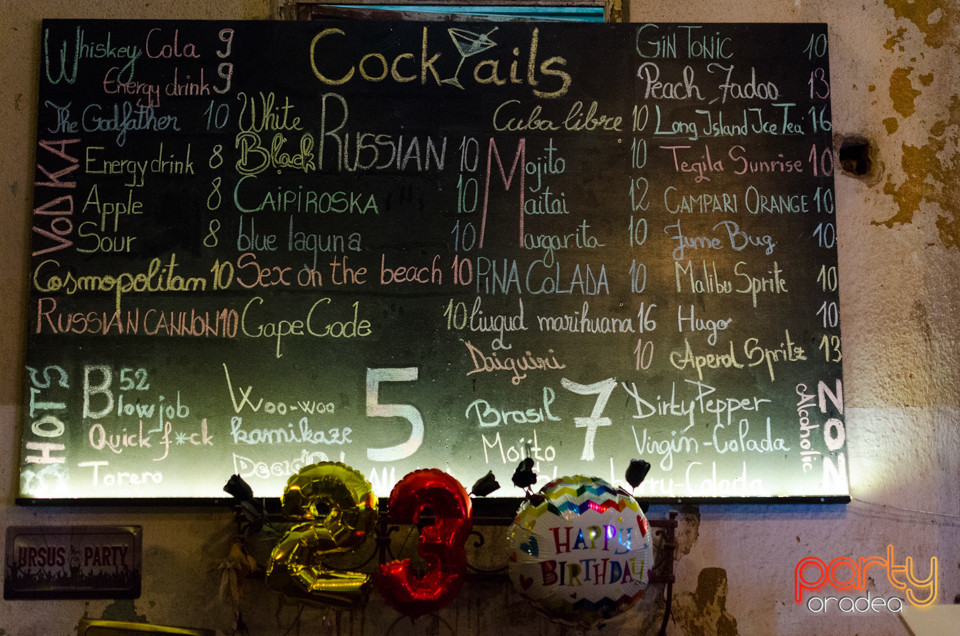 Cocktails
Whiskey Cola 9
Energy drink 9
The Godfather 10
VODKA
Energy drink 8
Apple 8
Sour 8
Cosmopolitam 10
RUSSIAN CANNON 10
White
Black RUSSIAN 10
CAIPIROSKA 10
blue laguna 10
Sex on the beach 10
Cape Code 10
Cuba libre 10
Mojito 10
Maitai 12
Margarita 10
PINA COLADA 10
liuqud marihuana 16
Daiquiri 10
Gin Tonic 10
Peach Zadoo 13
Long Island Ice Tea 16
Teqila Sunrise 10
CAMPARI ORANGE 10
June Bug 10
Malibu Sprite 10
Hugo 10
Aperol Spritz 13
SHOTS
B52
Blowjob
Quick f*ck
Torero
Woo-woo
kamikaze
5
Brasil
Mojito
7
NON
Alcoholic
Dirty Pepper
Virgin-Colada
Colada
URSUS PARTY
23
HAPPY
BIRTHDAY
party
oradea